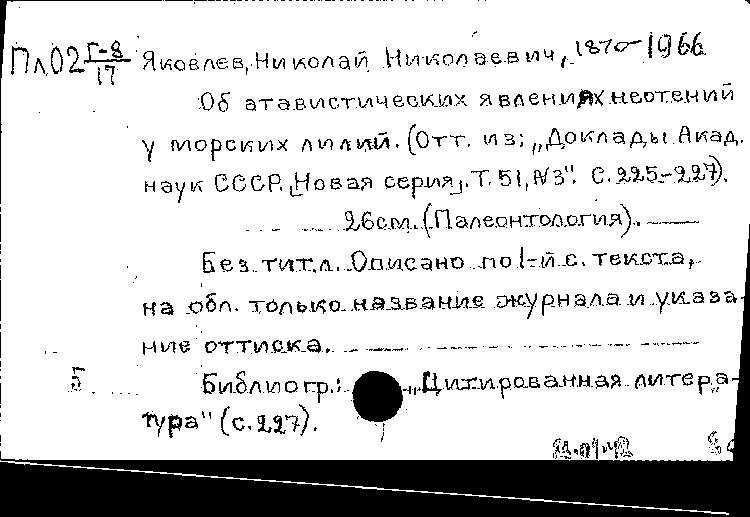 Пл02 Г-8/17 Яковлев, Николай Николаевич, 1870-1966
Об атавистических явлениях неотений
у морских лилий. (Отт. из: „Доклады Акад.
наук СССР. Новая серия". Т. 51, №3". С. 225-227).
26см. (Палеонтология).
Без титл. Описано по 1-й с. текста,
на обл. только название журнала и указа-
ние оттиска.
5 Библиогр.: „Цитированная литера-
тура" (с. 227).